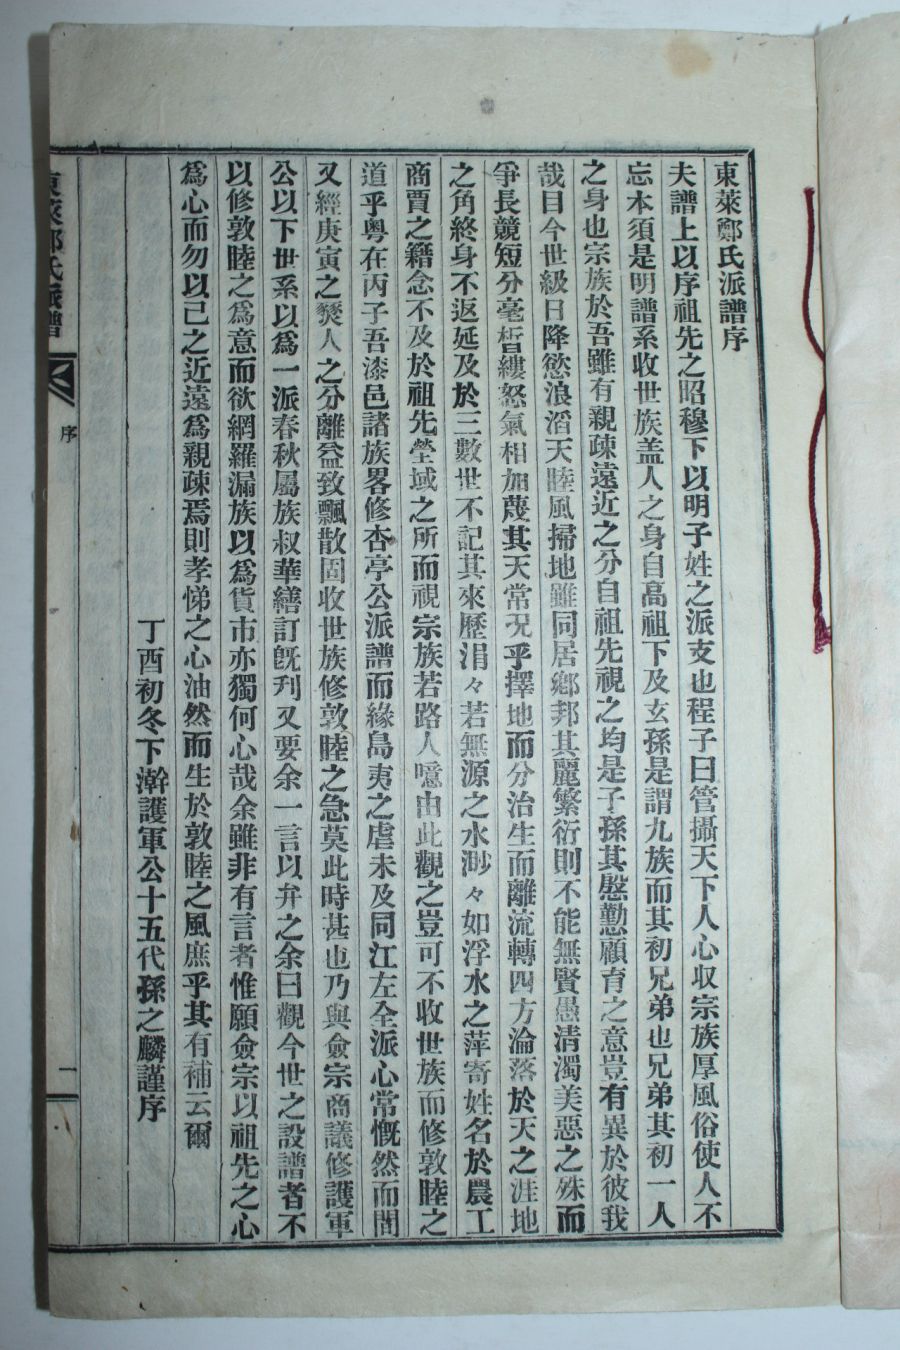 東萊鄭氏派譜序
夫譜上以序祖先之昭穆下以明子姓之派支也程子曰管攝天下人心収宗族厚風俗使人不
忘本須是明譜系收世族盖人之身自高祖下及玄孫是謂九族而其初兄弟也兄弟其初一人
之身也宗族於吾雖有親疎遠近之分自祖先視之均是子孫其慇懃顧育之意豈有異於彼我
哉目今世級日降慾浪滔天睦風掃地雖同居鄕邦其麗繁衍則不能無賢愚清濁美惡之殊而
爭長競短分毫晳縷怒氣相加蔑其天常况乎擇地而分治生而離流轉四方淪落於天之涯地
之角終身不返延及於三數世不記其來歷涓々若無源之水渺々如浮水之萍寄姓名於農工
商賈之籍念不及於祖先塋域之所而視宗族若路人噫由此觀之豈可不收世族而修敦睦之
道乎粤在丙子吾漆邑諸族畧修杏亭公派譜而緣島夷之虐未及同江左全派心常慨然而閭
又經庚寅之燹人之分離益致飄散固收世族修敦睦之急莫此時甚也乃與僉宗商議修護軍
公以下世系以爲一派春秋屬族叔華繕訂旣刋又要余一言以弁之余曰觀今世之設譜者不
以修敦睦之爲意而欲網羅漏族以爲貨市亦獨何心哉余雖非有言者惟願僉宗以祖先之心
爲心而勿以己之近遠爲親疎焉則孝悌之心油然而生於敦睦之風庶乎其有補云爾
丁酉初冬下澣護軍公十五代孫之麟謹序
東萊鄭氏派譜
序
一